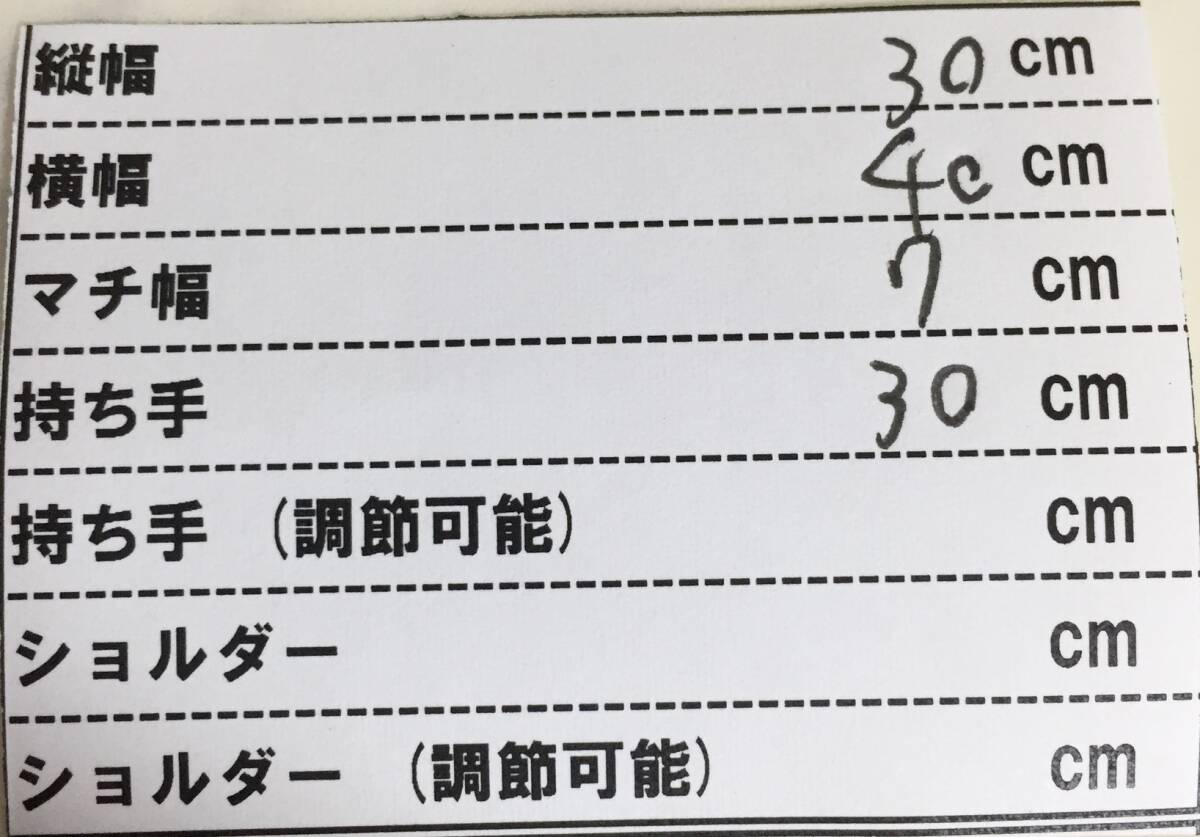 縦幅 30 cm
横幅 40 cm
マチ幅 7 cm
持ち手 30 cm
持ち手 (調節可能) cm
ショルダー cm
ショルダー (調節可能) cm